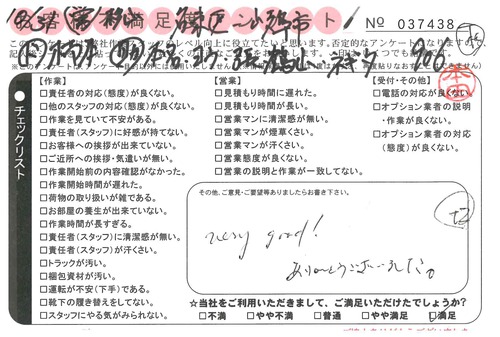 満足度 ト
№ 037438
【作業】
□責任者の対応(態度)が良くない。
□他のスタッフの対応(態度)が良くない。
□作業を見ていて不安がある。
□責任者(スタッフ)に好感が持てない。
□お客様への挨拶が出来ていない。
□ご近所への挨拶・気遣いが無い。
□作業開始前の内容確認がなかった。
□作業開始時間が遅れた。
□荷物の取り扱いが雑である。
□お部屋の養生が出来ていない。
□作業時間が長すぎる。
□責任者(スタッフ)に清潔感が無い。
□責任者(スタッフ)が汗くさい。
□トラックが汚い。
□梱包資材が汚い。
□運転が不安(下手)である。
□靴下の履き替えをしてない。
□スタッフにやる気がみられない。
チェックリスト
【営業】
□見積もり時間に遅れた。
□見積もり時間が長い。
□営業マンに清潔感が無い。
□営業マンが煙草くさい。
□営業マンが汗くさい。
□営業態度が良くない。
□営業の説明と作業が一致してない。
【受付・その他】
□電話の対応が良くない
□オプション業者の説明
・作業が良くない。
□オプション業者の対応
(態度)が良くない。
その他、ご意見・ご要望等ありましたらお書き下さい。
very good!
ありがとうございました。
☆当社をご利用いただきまして、ご満足いただけたでしょうか?
□不満 □やや不満 □普通 □やや満足 □満足